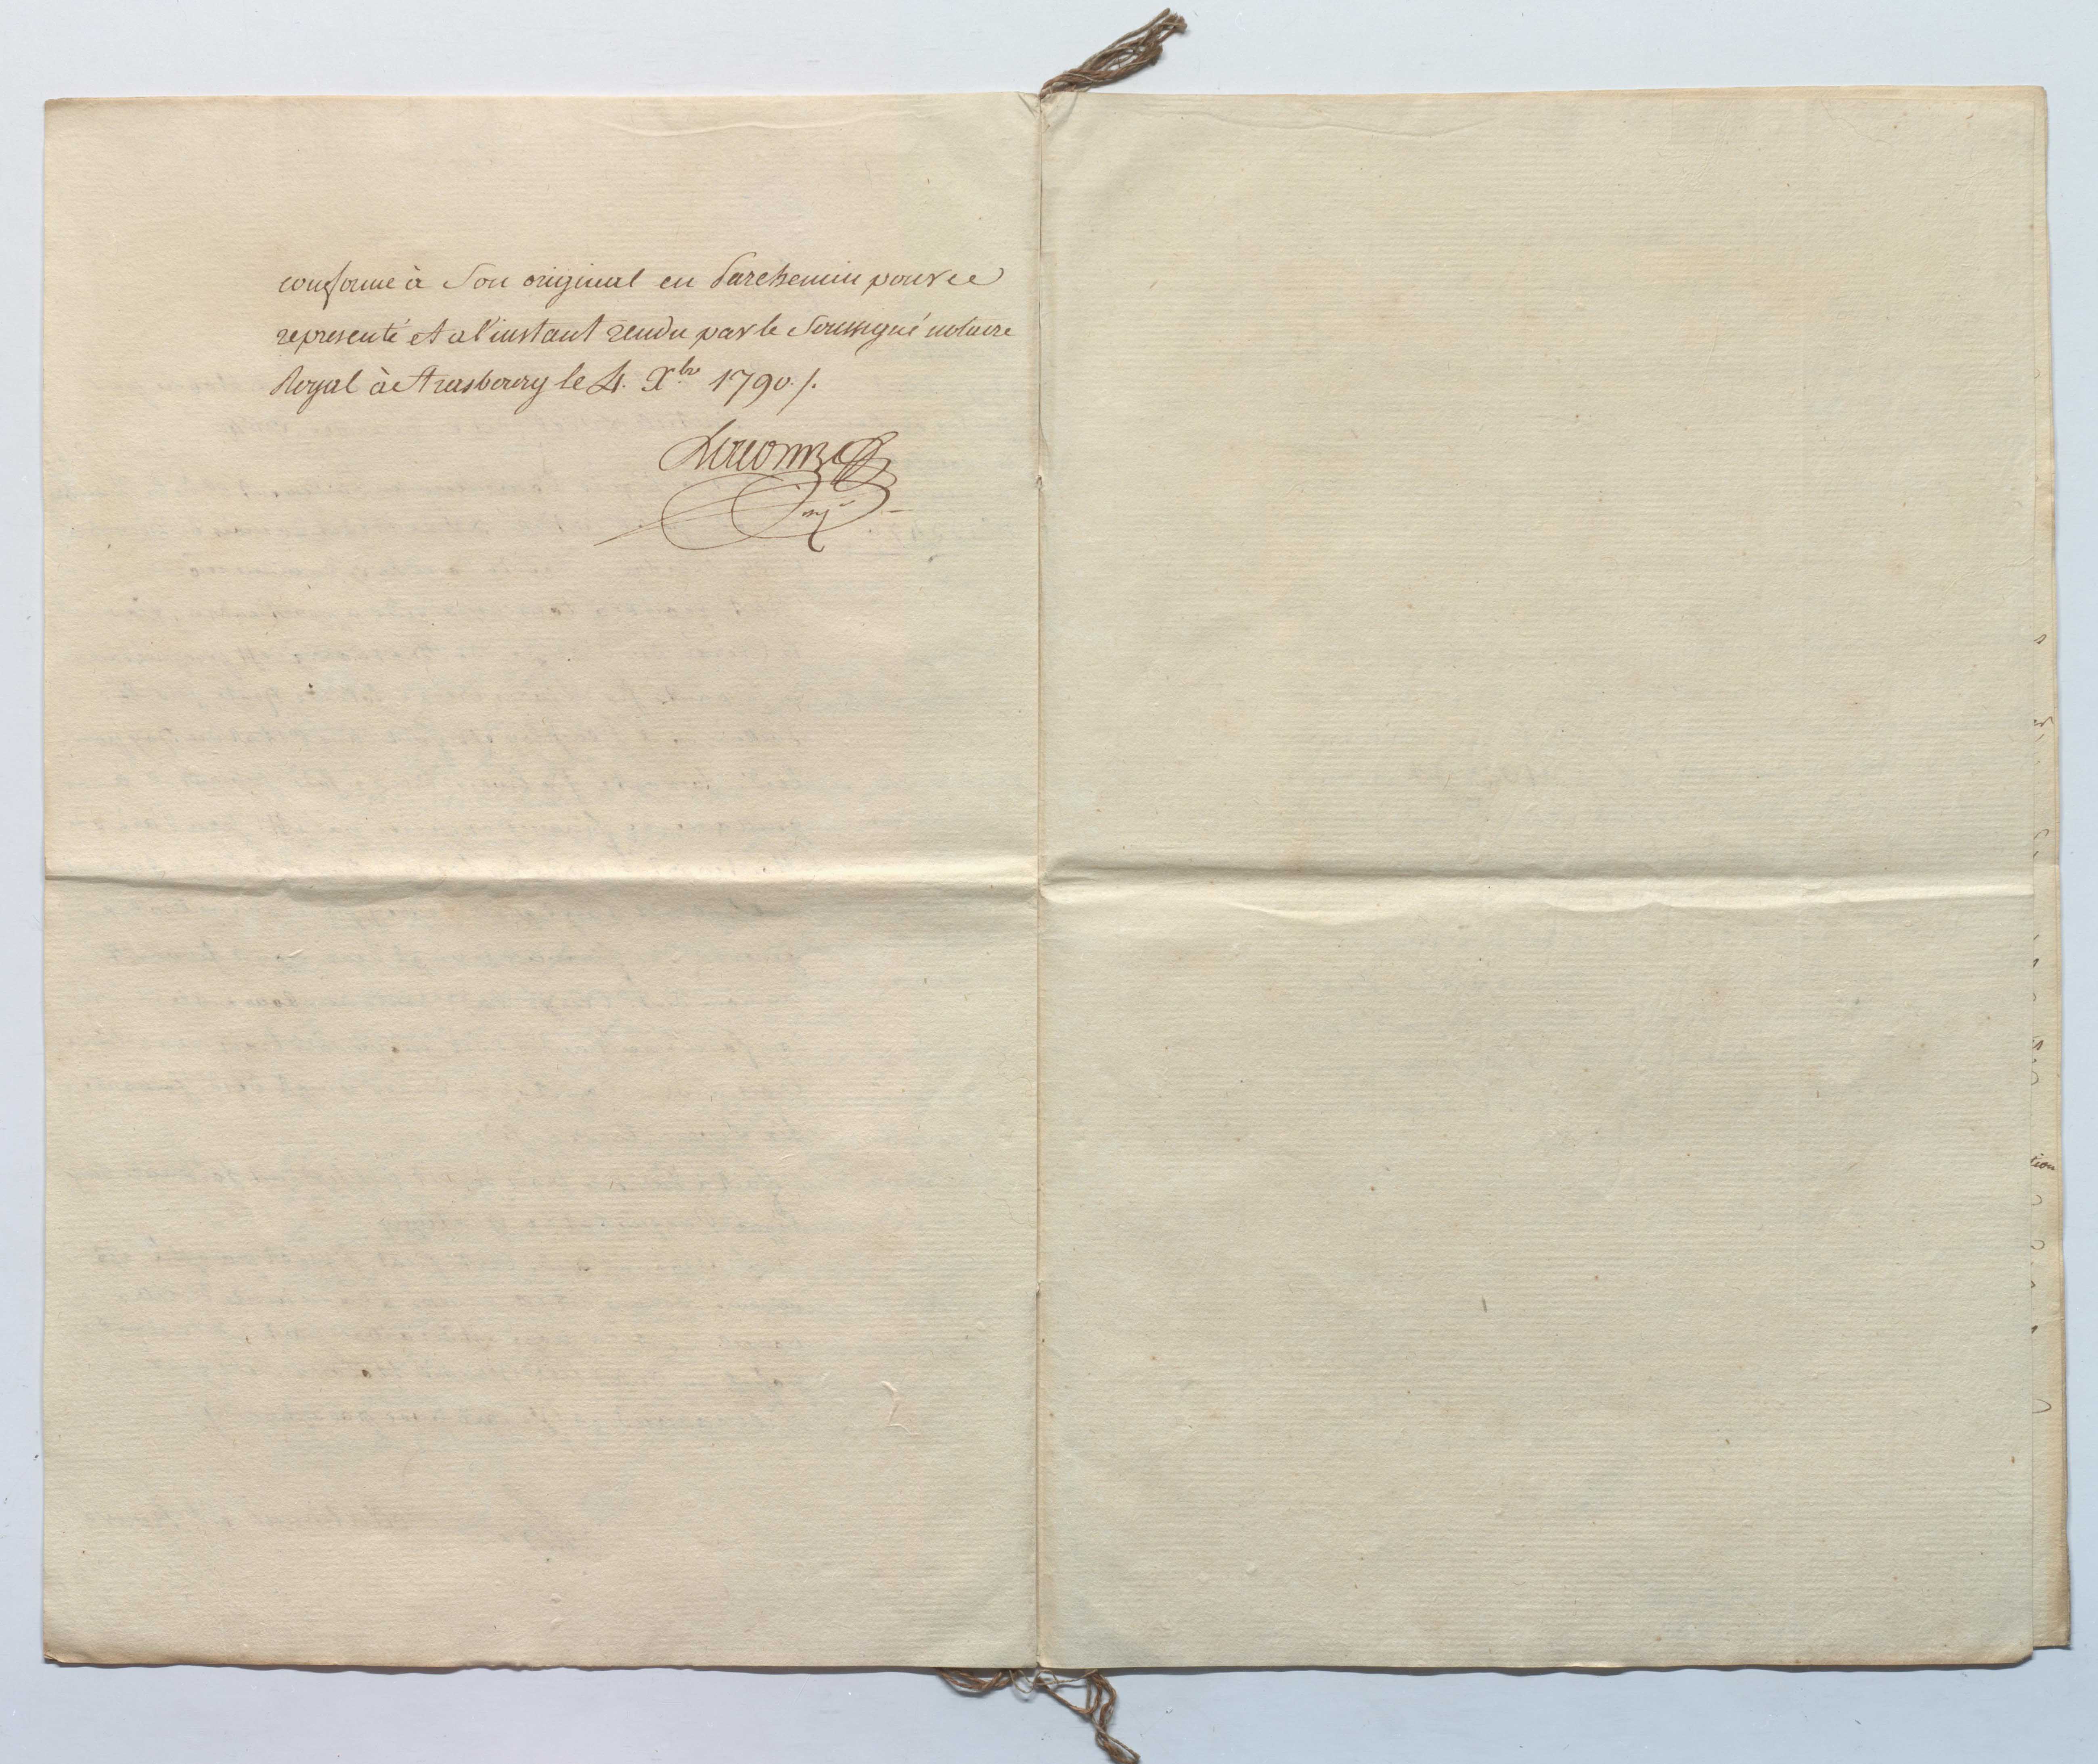 conforme à Son original en Parchemin pour ce
representé et a l'instant rendu par le Soussigné notaire
Royal à Strasbourg le 4. Xbre 1790 ./.
Lacombe